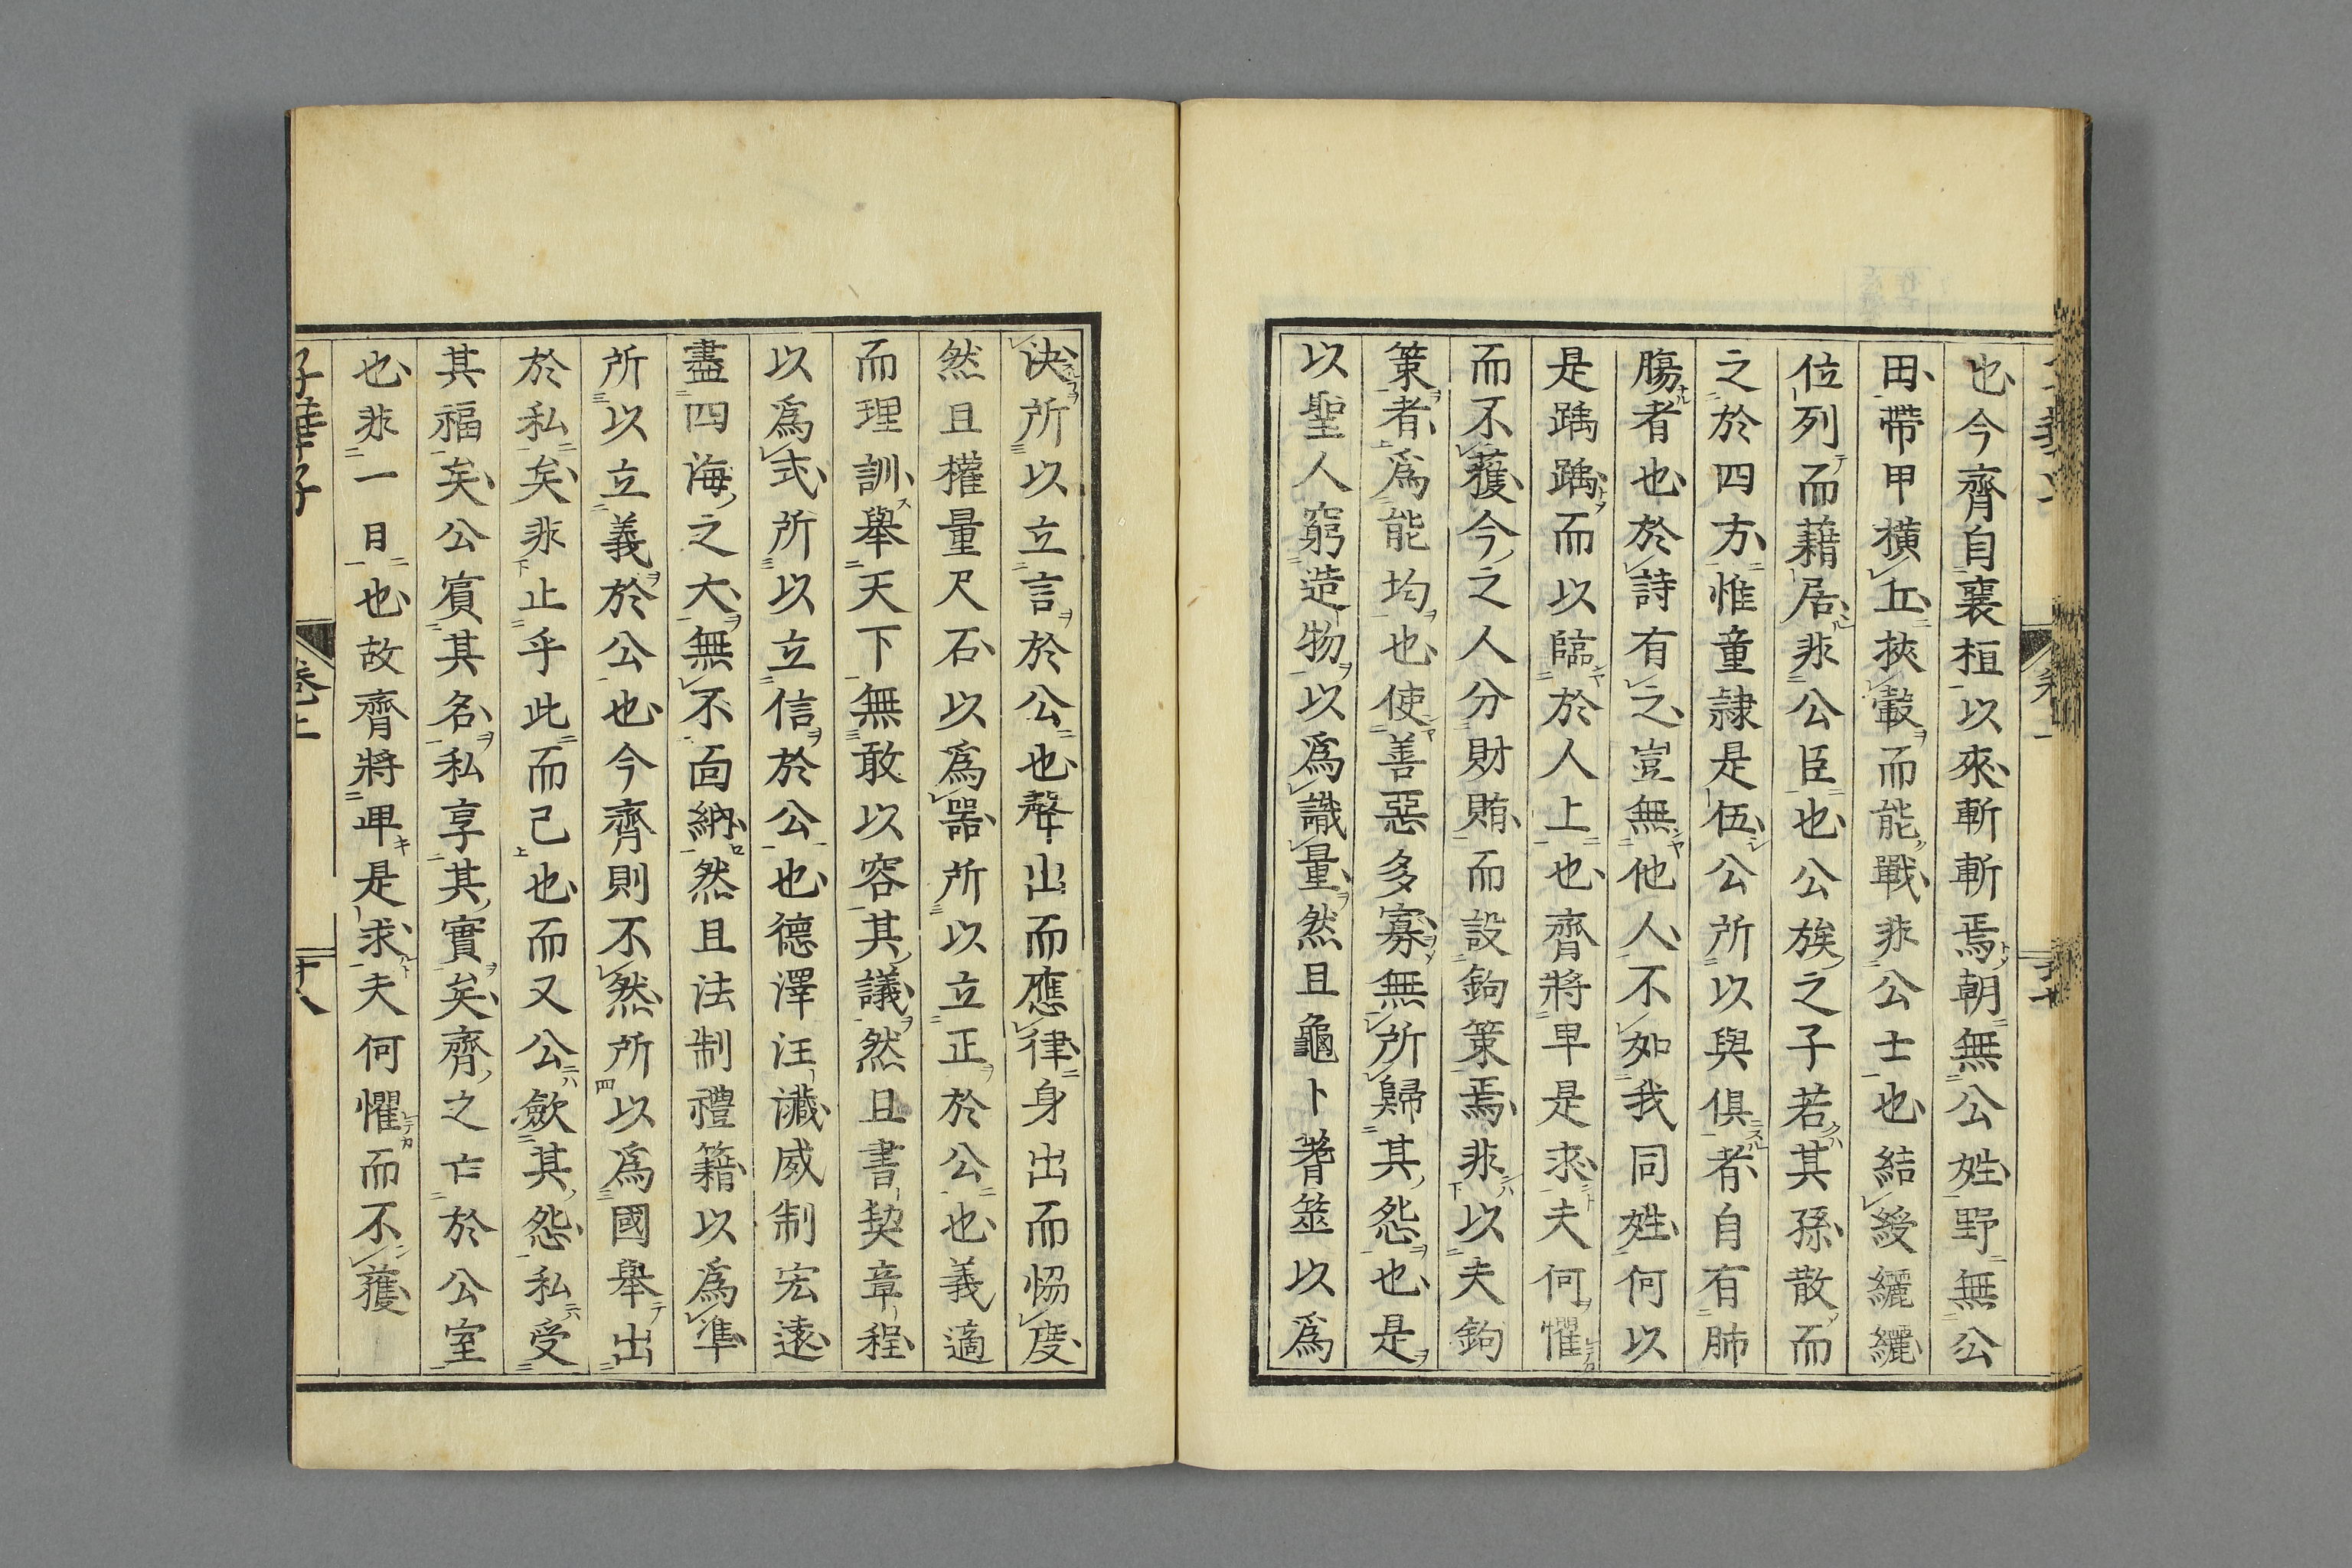 也今齊自襄桓以來斬斬焉朝無公姓野無公
田帶甲橫丘挾轂而能戰非公士也結綬纚纚
位列而藉居非公臣也公族之子若其孫散而
之於四方惟童隷是伍公所以與俱者自有肺
膓者也於詩有之豈無他人不如我同姓何以
是踽踽而以臨於人上也齊將卑是求夫何懼
而不獲今之人分財賄而設鉤策焉非以夫鉤
策者爲能均也使善惡多寡無所歸其怨也是
以聖人窮造物以爲識量然且龜卜蓍筮以爲
决所以立言於公也聲出而應律身出而恊度
然且權量尺石以爲器所以立正於公也義適
而理訓舉天下無敢以容其議然且書契章程
以爲式所以立信於公也德澤汪濊威制宏遠
盡四海之大無不面納然且法制禮籍以爲準
所以立義於公也今齊則不然所以爲國舉出
於私矣非止乎此而己也而又公歛其怨私受
其福矣公賔其名私享其實矣齊之亡於公室
也非一日也故齊將卑是求夫何懼而不獲
子華子 卷上 十八